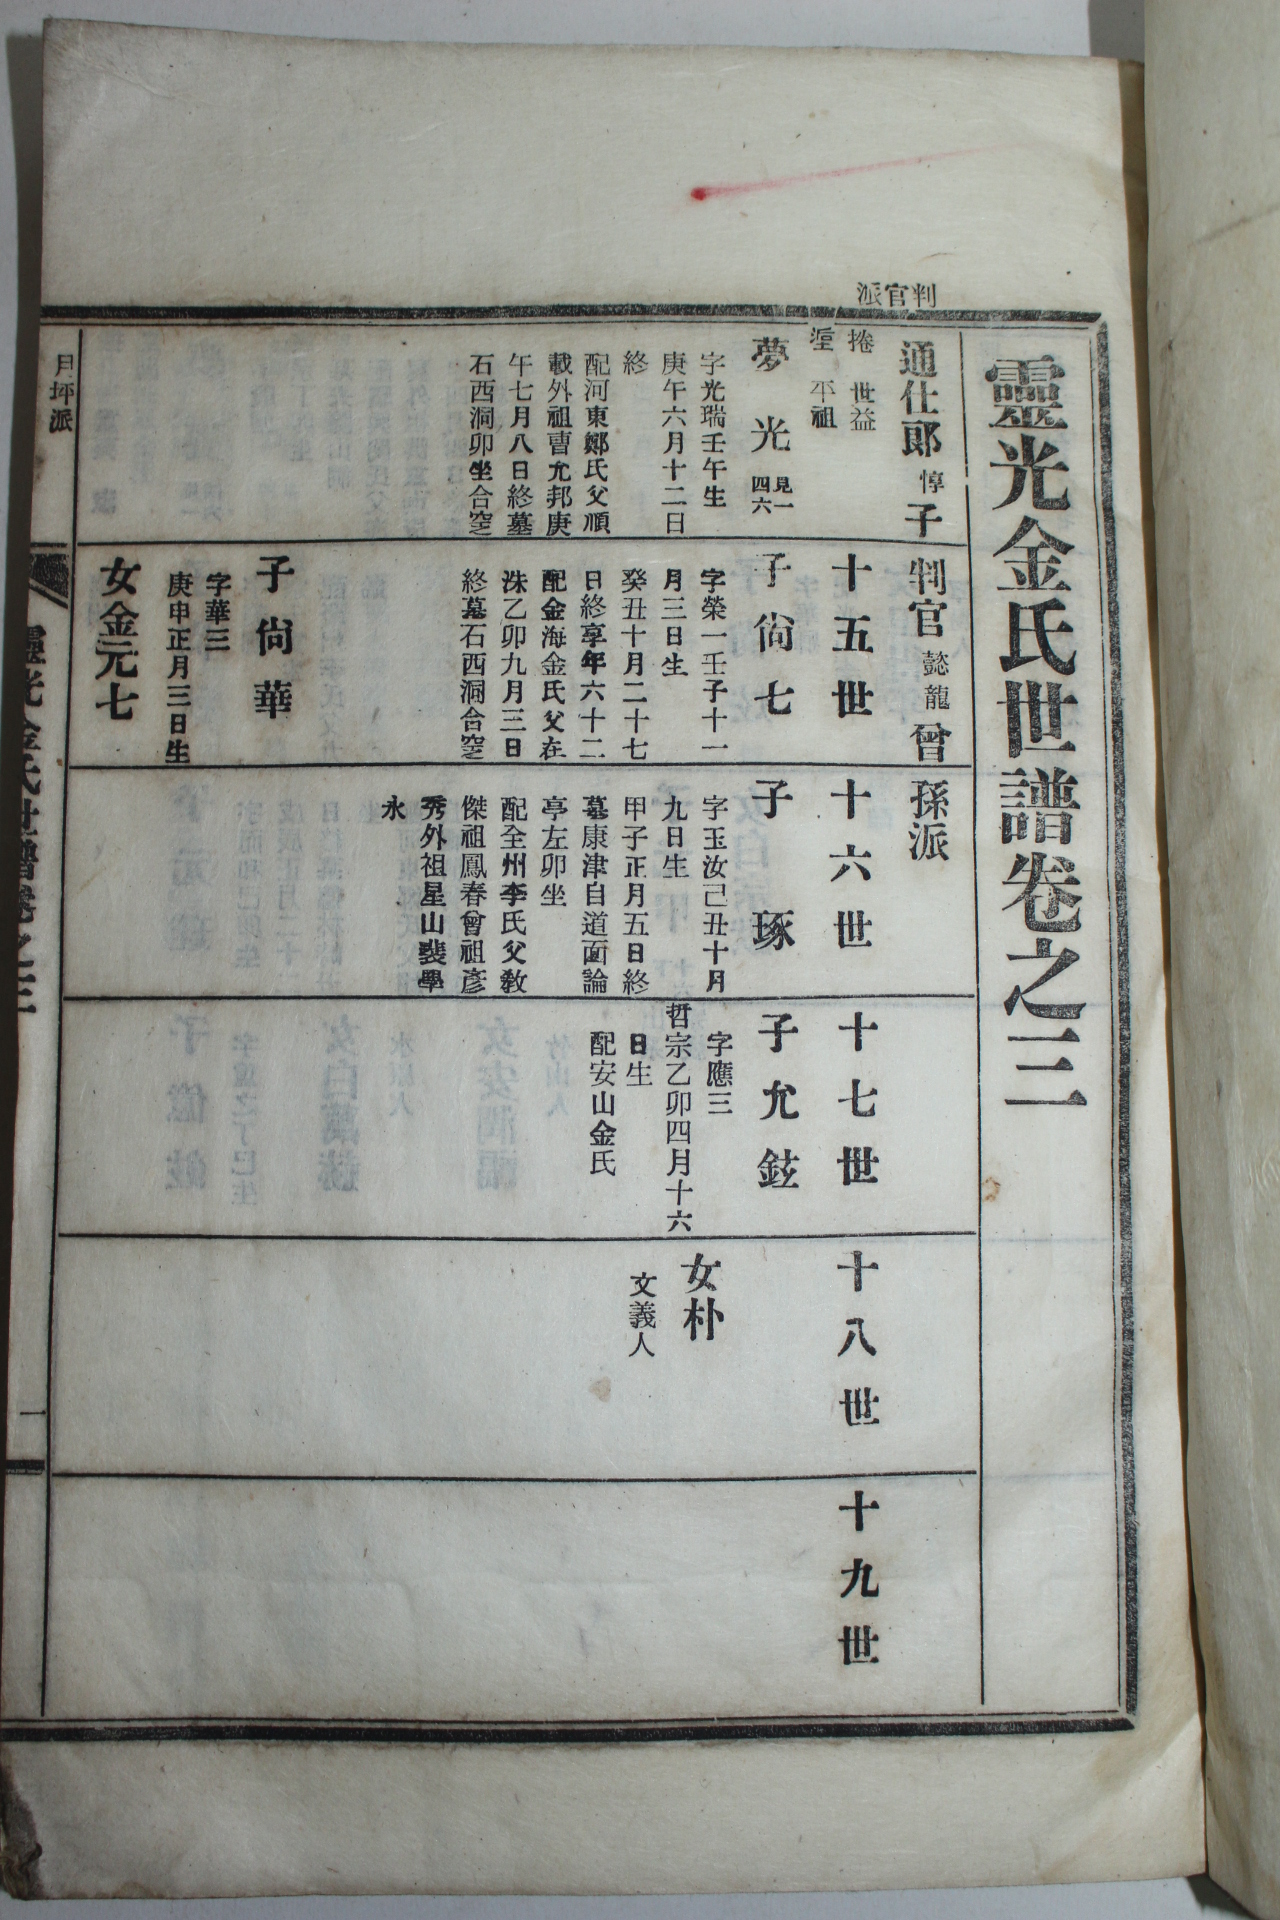 判官派
靈光金氏世譜卷之三
通仕郞 惇 子 判官 懿龍 曾孫派
捲 世益
湮 平祖
十五世
十六世
十七世
十八世
十九世
夢光 見一四六
字光瑞壬午生
庚午六月十二日
終
配河東鄭氏父順
載外祖曺允邦庚
午七月八日終墓
石西洞卯坐合窆
子尙七
字榮一壬子十一
月三日生
癸丑十月二十七
日終享年六十二
配金海金氏父在
洙乙卯九月三日
終墓石西洞合窆
子尙華
字華三
庚申正月三日生
女金元七
子琢
字玉汝己丑十月
九日生
甲子正月五日終
墓康津自道面論
亭左卯坐
配全州李氏父敎
傑祖鳳春曾祖彦
秀外祖星山裴學
永
子允鉉
字應三
哲宗乙卯四月十六
日生
配安山金氏
女朴
文義人
月坪派
靈光金氏世譜卷之三
一